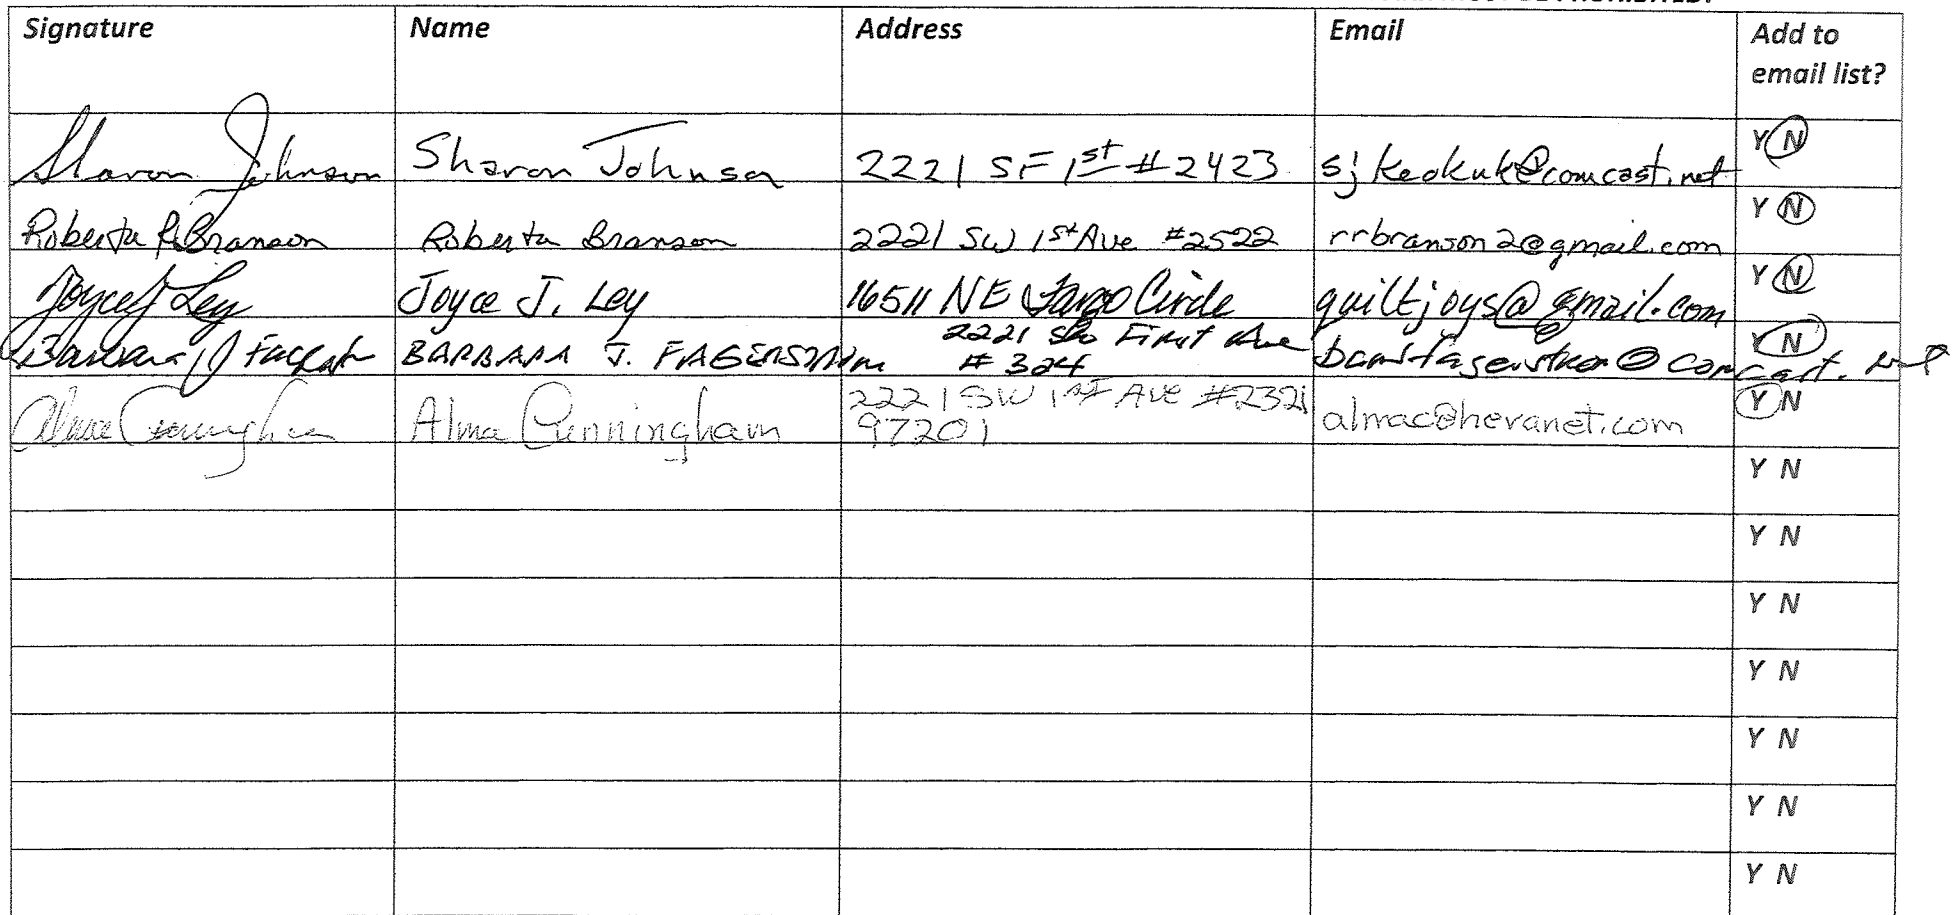 Signature Name Address Email Add to
email list?
Sharon Johnson Sharon Johnson 2221 SF 1st #2423 sjkeokuk@comcast.net Y N
Roberta R Branson Roberta Branson 2221 SW 1st Ave #2522 rrbranson2@gmail.com Y N
Joyce J Ley Joyce J. Ley 16511 NE Fargo Circle quiltjoys@gmail.com Y N
2221 SW First Ave
Barbara J BARBARA J. FAGERSTROM # 324 @comcast.net Y N
2221 SW 1st Ave #2321 Y N
Alma Cunningham Alma Cunningham 97201 almac@hevanet.com
Y N
Y N
Y N
Y N
Y N
Y N
Y N